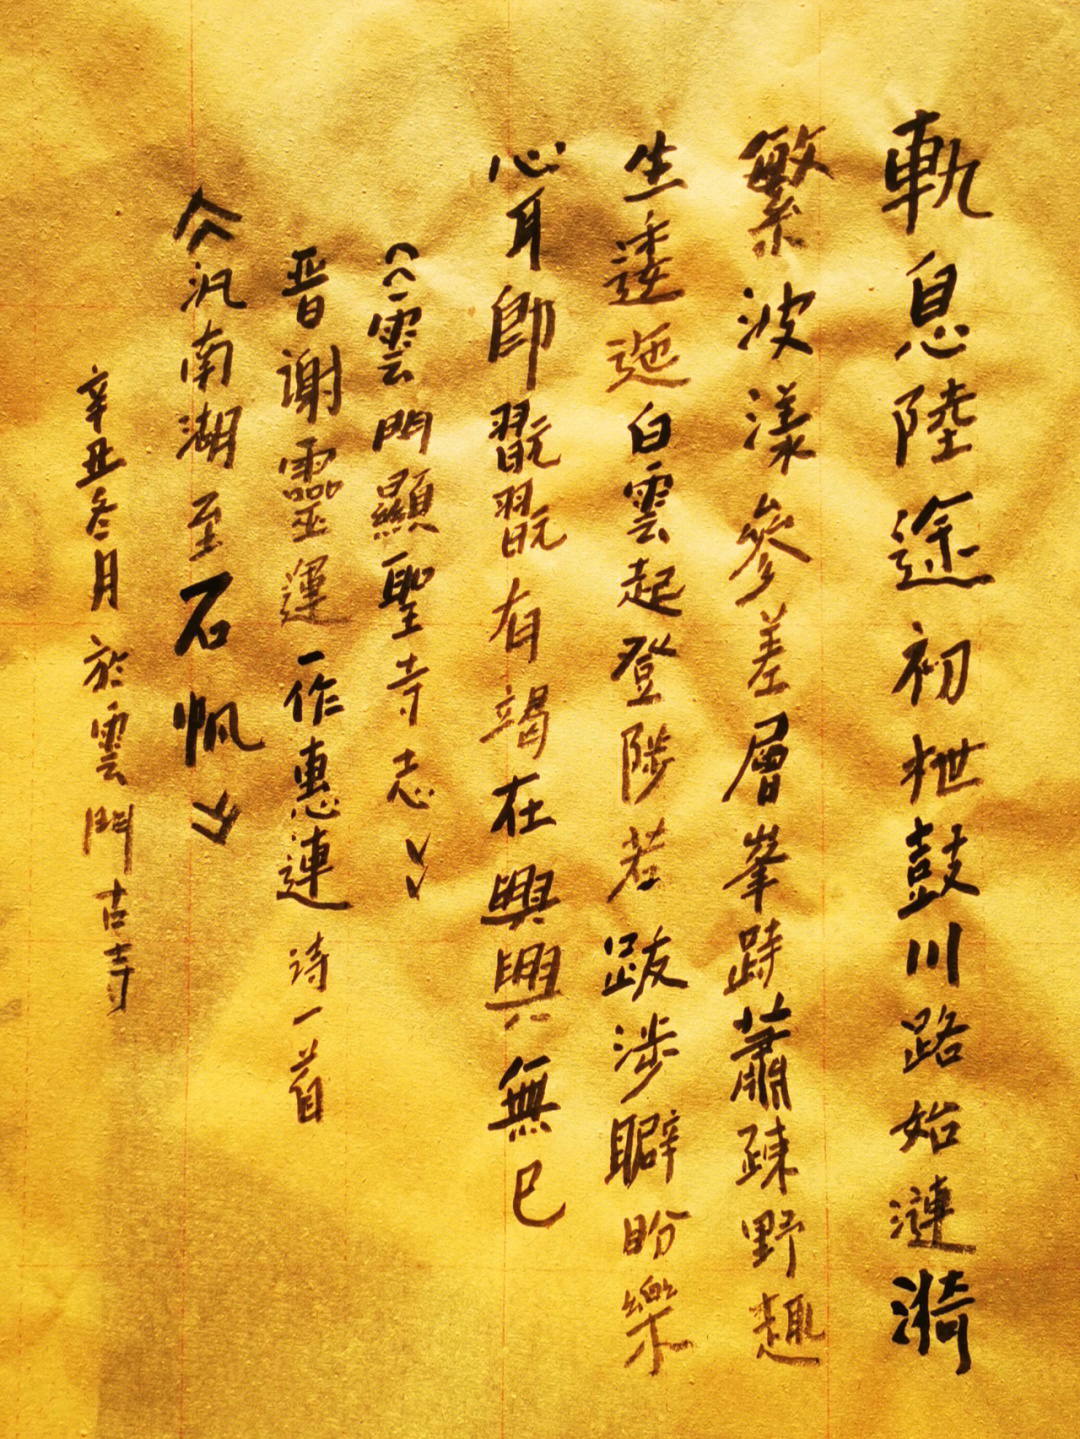 軌息陸途初枻鼓川路始漣漪
繁波漾參差層峯跱蕭疎野趣
生逶迤白雲起登陟若跋涉䁹盼樂
心耳卽翫翫有竭在興興無已
《雲門顯聖寺志》
晋謝靈運一作惠連 诗一首
《汎南湖至石帆》
辛丑冬月於雲門古寺